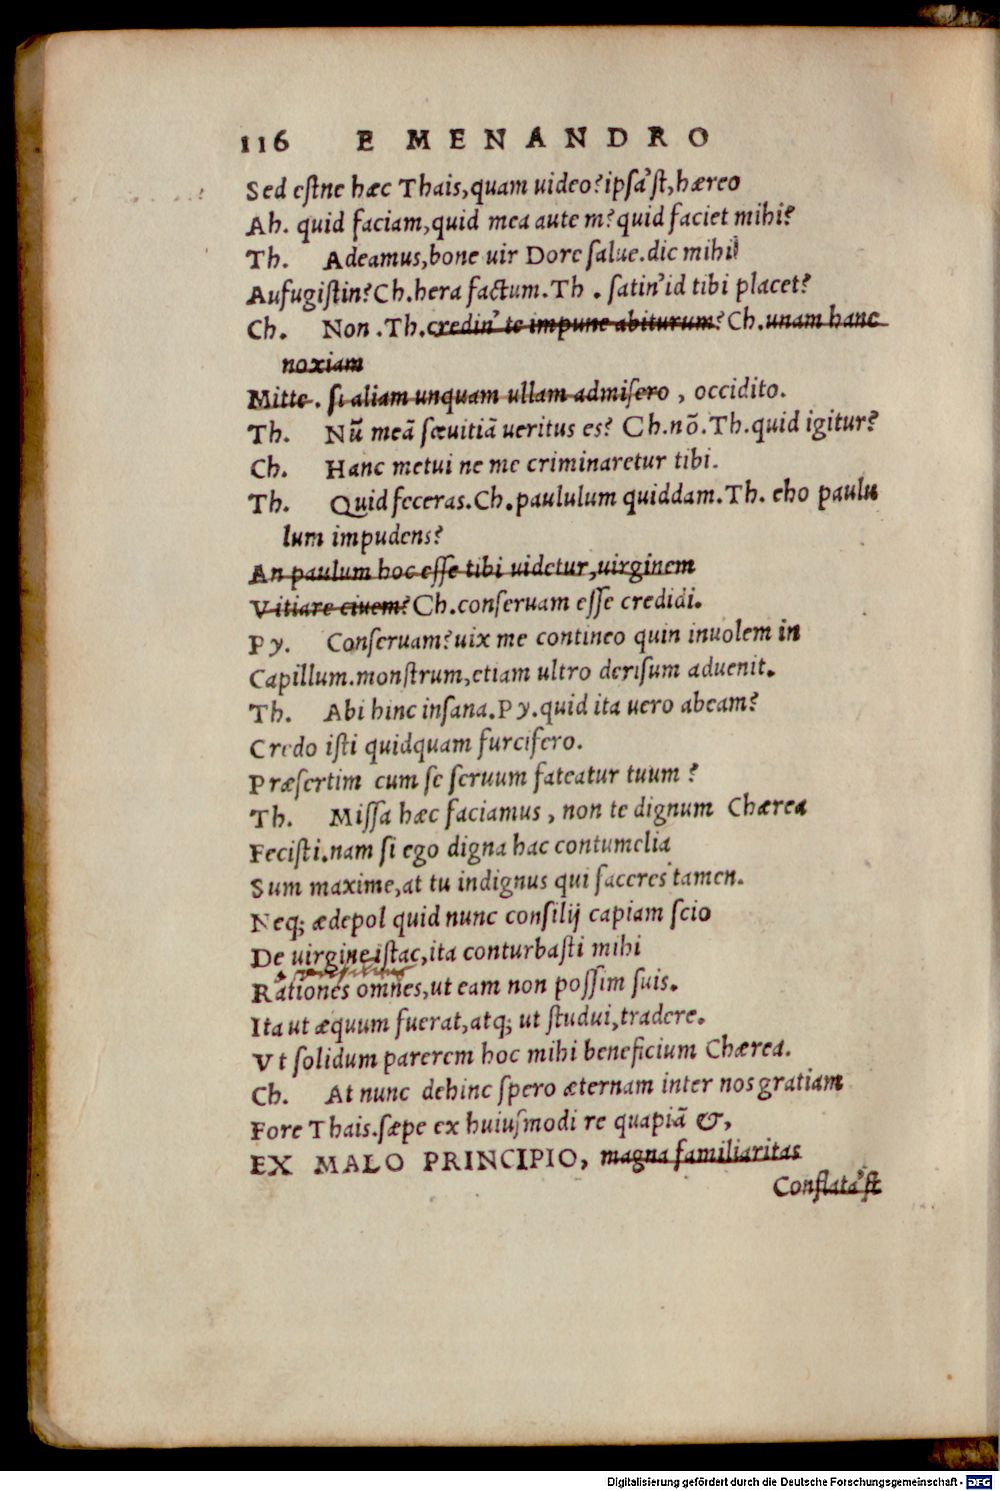 116 E MENANDRO
Sed estne hæc Thais,quam uideo?ipsa'st,hæreo
Ah. quid faciam,quid mea aute m?quid faciet mihi?
Th. Adeamus,bone uir Dore salue.dic mihi
Aufugistin?Ch.hera factum.Th . satin'id tibi placet?
Ch. Non .Th.credin' te impune abiturum?Ch.unam hanc
noxiam
Mitte. si aliam unquam ullam admisero , occidito.
Th. Nũ meã sæuitiã ueritus es? Ch.nõ.Th.quid igitur?
Ch. Hanc metui ne me criminaretur tibi.
Th. Quid feceras.Ch.paululum quiddam.Th. eho paulu
lum impudens?
An paulum hoc esse tibi uidetur,uirginem
Vitiare ciuem?Ch.conseruam esse credidi.
Py. Conseruam?uix me contineo quin inuolem in
Capillum.monstrum,etiam ultro derisum aduenit.
Th. Abi hinc insana.Py.quid ita uero abeam?
Credo isti quidquam furcifero.
Præsertim cum se seruum fateatur tuum ?
Th. Missa hæc faciamus , non te dignum Chærea
Fecisti.nam si ego digna hac contumelia
Sum maxime,at tu indignus qui faceres tamen.
Neq; ædepol quid nunc consilij capiam scio
De uirgine istac,ita conturbasti mihi
Rationes omnes,ut eam non possim suis.
Ita ut æquum fuerat,atq; ut studui,tradere.
Vt solidum parerem hoc mihi beneficium Chærea.
Ch. At nunc dehinc spero æternam inter nos gratiam
Fore Thais.sæpe ex huiusmodi re quapiã &,
EX MALO PRINCIPIO, magna familiaritas
Conflata'st
Digitalisierung gefördert durch die Deutsche Forschungsgemeinschaft - DFG